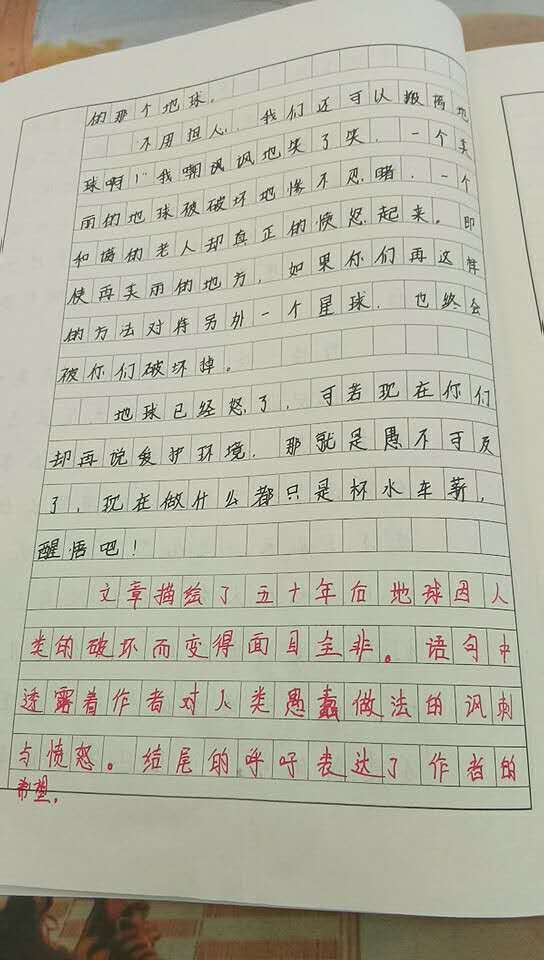 的那个地球。
不用担人，我们还可以搬离地
球啊！"我嘲讽讽地笑了笑，一个美
丽的地球被破坏地惨不忍睹，一个
和蔼的老人却真正的愤怒起来。即
使再美丽的地方，如果你们再这样
的方法对待另外一个星球，也终会
被你们破坏掉。
地球已经怒了，可若现在你们
却再说爱护环境，那就是愚不可及
了，现在做什么都只是杯水车薪，
醒悟吧！
文章描绘了五十年后地球因人
类的破坏而变得面目全非。语句中
透露着作者对人类愚蠢做法的讽刺
与愤怒。结尾的呼吁表达了作者的
希望。